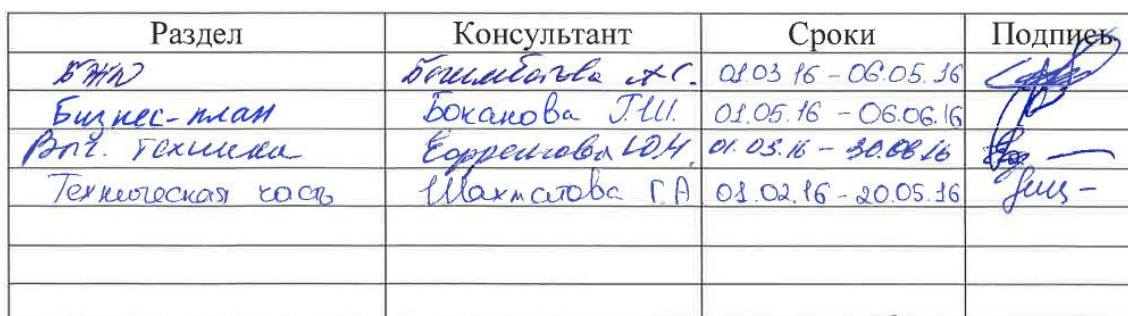 Раздел Консультант Сроки Подпись
БЖД А.С. 01.03.16 - 06.05.16
Бизнес-план Боканова Г.Ш. 01.05.16 - 06.06.16
Выч. техника Ю.М. 01.03.16 - 30.06.16
Техническая часть Шахматова Г.А 01.02.16 - 20.05.16